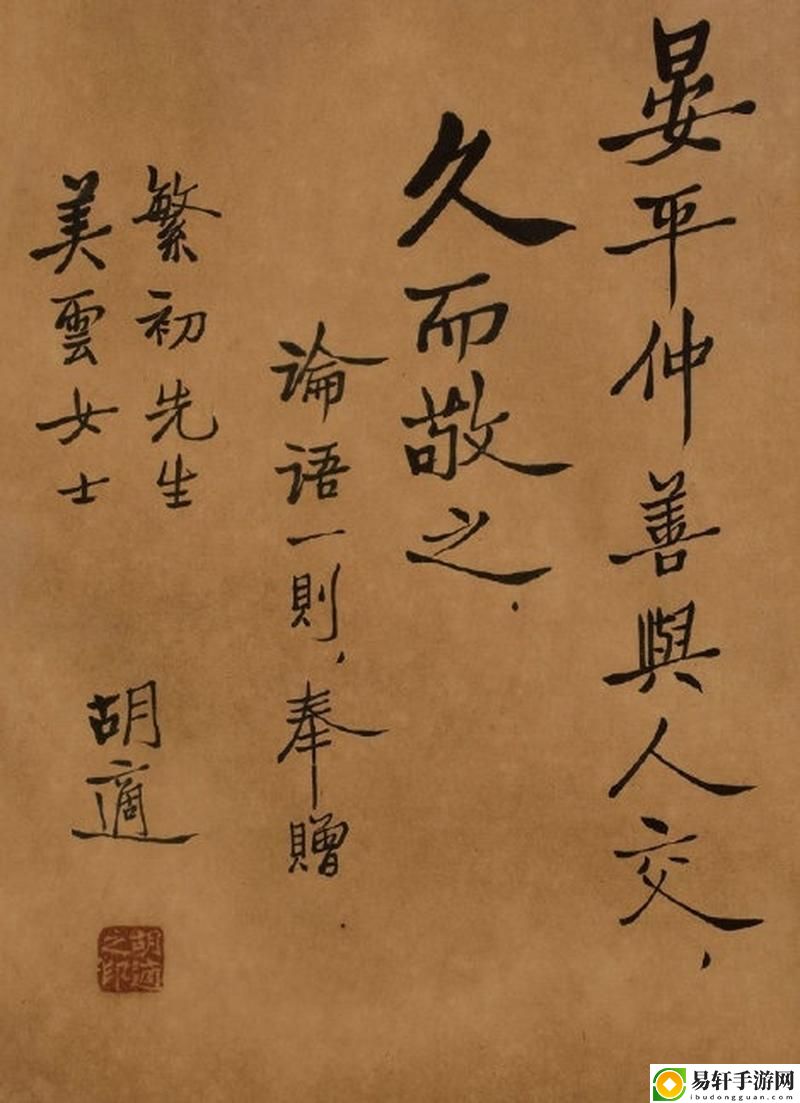 晏平仲善與人交，
久而敬之．
論语一則，奉贈
繁初先生
美雲女士
胡適
胡適之印
易轩手游网
ibudongguan.com